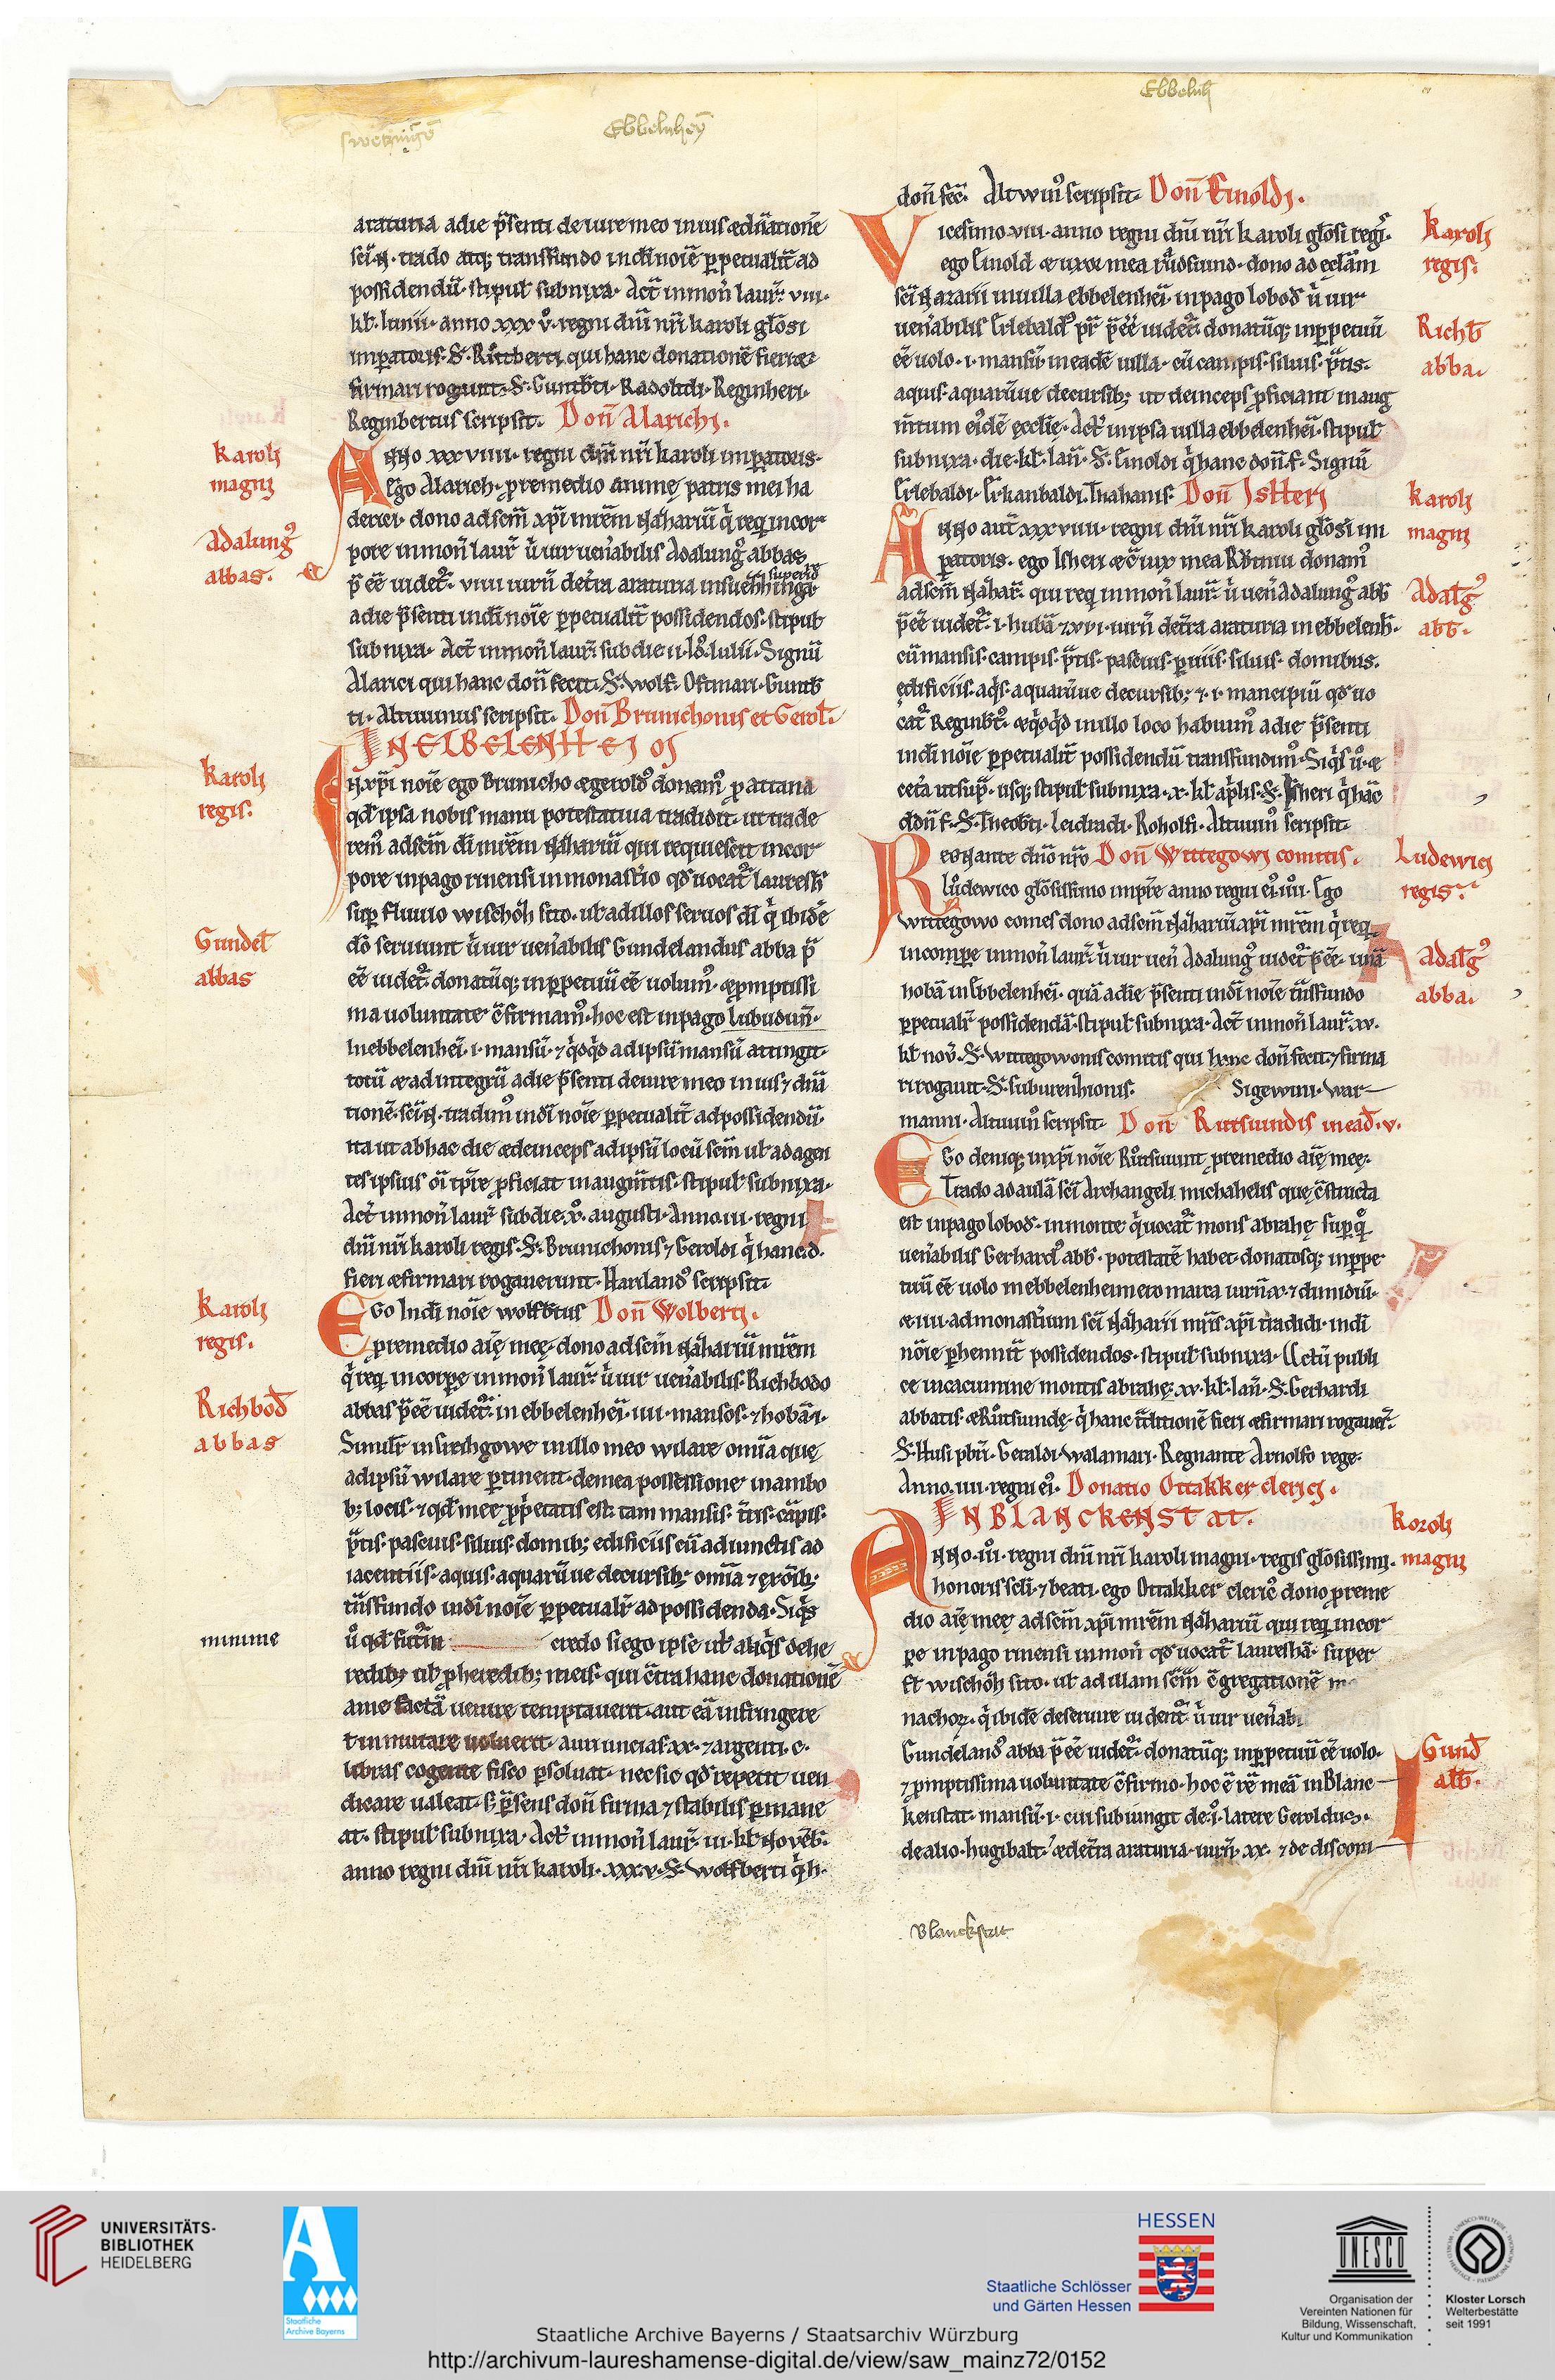 Ebbelnh̄
swetzingē
Ebbelnheȳ
araturia adie p̄senti de iure meo in ius ⁊ dn̄ationē
sc̄i N. trado atq; transfundo in dī noīe ꝑpetualit̄ ad
possidendū. stipul̄ subnixa. Act̄ in mon̄ laur̄. viii.
kl̄. Iunii. anno xxx v. regni dn̄i nr̄i karoli gl̄osi
imꝑatoris. S. Rutberti qui hanc donationē fieri ⁊
firmari rogauit. S. Guntb̄ti. Radolfdi. Reginheri.
Reginbertus scripsit. Don̄ Alarichi.
Karoli
magni
ANno xxxviiii. regni dn̄i nr̄i karoli imꝑatoris.
Ego Alarich. ꝓ remedio animę patris mei ha
derici. dono ad sc̄m xp̄i mr̄em Nazhariū q̄ req in cor
Adalung᷒
abbas.
pore in mon̄ laur̄ u̇ uir uen̄abilis Adalung᷒ abbas
superio
p̄ ēē uidet᷒. viiii iurn̄ det̄ra araturia in suezhinga
adie p̄senti in dī noīe ꝑpetualit̄ possidendos. stipul̄
subnixa. Act̄ in mon̄ laur̄. sub die ii. Id᷒. Iulii. Signū
Alarici qui hanc don̄ fecit. S. Wolf. Ostmari. Guntb̄
ti. Altuuinus scripsit. Don̄ Brunichonis et Gerol̄.
IN EBBELENHEI
Karoli
regis.
IN xp̄i noīe ego Brunicho ⁊ gerold᷒ donam᷒ ꝓ attana
qd̄ ipsa nobis manu potestatiua tradidit. ut trade
rem᷒ ad sc̄m dī mr̄em Nazhariū qui requiescit in cor
pore in pago rinensi in monast̄io qd̄ uocat᷒ lauresh̄
suꝑ fluuio wischoz sito. ul̄ ad illos seruos dī q̄ ibidē
Gundel̄
abbas
dō seruiunt u̇ uir uen̄abilis Gundelandus abba p̄
ēē uidet᷒. donatūq; in ꝑpetuū ēē uolum᷒. ⁊ ꝓmptissi
ma uoluntate c̄firmam᷒. hoc est in pago lubudun̄.
In ebbelenhei. i. mansū. ⁊ q̄dq̄d ad ipsū mansū attingit.
totū ⁊ ad integrū adie p̄senti de iure meo in ius ⁊ dn̄a
tionē. sc̄i N. tradim᷒ in dī noīe ꝑpetualit̄ ad possidendū.
ita ut ab hac die ⁊ deinceps ad ipsū locū sc̄m ul̄ ad agen
tes ipsius oī tꝑre ꝓficiat in augm̄tis. stipul̄ subnixa.
Act̄ in mon̄ laur̄ sub die. x. augusti. Anno iii. regni
dn̄i nr̄i karoli regis. S. Brunichonis ⁊ Geroldi q̄ hanc d.
fieri ⁊ firmari rogauerunt. Hariland᷒ scripsit.
Karoli
regis.
EGo In dī noīe wolfb̄tus Don̄ Wolberti.
ꝓ remedio aīę meę. dono ad sc̄m Nazhariū mr̄em
q̄ req in corpe in mon̄ laur̄. u̇ uir uen̄abilis Richbodo
Richbod̄
abbas
abbas p̄ ēē uidet᷒. in ebbelenhei. iiii. mansos. ⁊ hobā. i.
Simil̄r in sirchgowe in illo meo wilare om̄ia que
ad ipsū wilare ꝑtinent. de mea possessione in ambo
b; locis. ⁊ qd̄ mee ꝓp̄etatis est. tam mansis. t̄ris. cāpis.
p̄tis. pascuis. siluis. domib; edificiis cū adiunctis ad
iacentiis. aquis. aquarū ue decursib; om̄ia ⁊ ex om̄ib;
tn̄sfundo in dī noīe ꝑpetual̄r ad possidenda. Siq̄s
minime
ů qd̄ futūr credo si ego ipse ul̄ aliq̄s de he
redib; ul̄ ꝓheredib; meis. qui c̄tra hanc donationē
a me factā uenire temptauerit. aut eā infringere
t inmutare uoluerit. auri uncias xx. ⁊ argenti. c.
libras cogente fisco ꝑsoluat. nec sic qd̄ repetit uen
dicare ualeat. s; p̄sens don̄ firma ⁊ stabilis ꝑmane
at. stipul̄ subnixa. Act̄ in mon̄ laur̄. iii. kl̄. Novēb̄.
anno regni dn̄i nr̄i karoli. xxxv. S. Wolfberti q̄ h.
don̄ fec̄. Altwin᷒ scripsit. Don̄ Einoldi.
Karoli
regis.
VIcesimo. viii. anno regni dn̄i nr̄i karoli gl̄osi regi᷒.
ego Einold ⁊ uxor mea Rudsuind. dono ad eccl̄am
sc̄i Nazarii in uilla ebbelenhei. in pago lobod̄. u̇ uir
Richb̄
abba.
uen̄abilis Erlebald᷒ pr̄ p̄ ēē uidet᷒. donatūq; in ꝑpetuū
ēē uolo. i. mansū. in eadē uilla. cū campis. siluis. p̄tis.
aquis. aquarū ue decursib; ut deinceps ꝓficiant in aug
m̄tum ei᷒dē ecclīe. Act̄ in ipsa uilla ebbelenhei. stipul̄
subnixa. die. kl̄. Ian̄. S. Einoldi q̄ hanc don̄ f. Signū
Erlebaldi. Erkanbaldi. Thahanis. Don̄ Isheri
Karoli
magni
ANno aut̄ xxxviiii. regni dn̄i nr̄i karoli gl̄osi im
ꝑatoris. ego Isheri ⁊ c̄iux mea Rb̄tniu donam᷒
Adal̄g᷒
abb̄.
ad sc̄m Nazhar̄. qui req in mon̄ laur̄ u̇ uen̄ Adalung᷒ abb̄
p̄ ēē uidet᷒. i. hubā ⁊ xvi. iurn̄ det̄ra araturia in ebbelenh̄.
cū mansis. campis. p̄tis. pascuis. ꝑuiis. siluis. domibus.
ędificiis. aq̄s. aquarū ue decursib; ⁊. i. mancipiū qd̄ uo
cat᷒ Reginb̄t᷒. ⁊ q̄dq̄d in illo loco habuim᷒ adie p̄senti
in dī noīe ꝑpetualit̄ possidendū transfundim᷒. Siq̄s ů. ⁊
cet̄a ut sup̄. usq; stipul̄ subnixa. x. kl̄. ap̄lis. S. Isheri q̄ hāc
don̄ f. S. Theob̄ti. Leidradi. Roholfi. Altuuin᷒ scripsit.
Ludewici
regis.
REgnante dn̄o nr̄o Don̄ Wittegowi comitis.
ludewico gl̄osissimo imꝑre anno regni ei᷒ iiii. Ego
wittegowo comes dono ad sc̄m Nazhariū xp̄i mr̄em q̄ req
Adal̄g᷒
abba.
in corpe in mon̄ laur̄ u̇ uir uen̄ Adalung᷒ uidet᷒ p̄ ēē. unā
hobā in Ebbelenhei. quā adie p̄senti in dī noīe tn̄sfundo
ꝑpetual̄r possidendā. stipul̄ subnixa. Act̄ in mon̄ laur̄. xv.
kl̄. nov̄. S. Wittegowonis comitis qui hanc don̄ fecit ⁊ firma
ri rogauit. S. suburenhionis. Sigewini. War
manni. Altuuin᷒ scripsit. Don̄ Rutsuindis in ead̄. v.
EGo deniq; in xp̄i noīe Rutsuuint ꝓ remedio aīę meę.
Trado ad aulā sc̄i Archangeli michahelis que c̄structa
est in pago lobod̄. in monte q̄ uocat᷒ mons abrahę suꝑ q̊
uen̄abilis Gerhard᷒ abb̄. potestatē habet. donatosq; in ꝑpe
tuū ēē uolo in ebbelenheimero marca iurn̄. x. ⁊ dimidiū.
⁊ iiii. ad monast̄ium sc̄i Nazharii mr̄is xp̄i tradidi. in dī
nōie ꝑhennit̄ possidendos. stipul̄ subnixa. Actū publi
ce in cacumine montis abrahę. xv. kl̄. Ian̄. S. Gerhardi
abbatis. ⁊ Rutsundę. q̄ hanc t̄ditionē fieri ⁊ firmari rogauer̄.
S. Husi pb̄ri. Geraldi. Walamari. Regnante Arnolfo rege.
Anno. iiii. regni ei᷒. Donatio Ottakker clerici.
IN BlancKENStat.
Karoli
magni
ANno. iii. regni dn̄i nr̄i karoli magni. regis gl̄osissimi.
honoris sc̄li. ⁊ beati. ego Ottakker cleric᷒ dono ꝓ reme
dio aīę meę ad sc̄m xp̄i mr̄em Nazhariū qui req in cor
pe in pago rinensi in mon̄ qd̄ uocat᷒ laureshā. super
fl̄ wischoz sito. ul̄ ad illam sc̄m c̄gregationē m
nachoꝝ. q̄ ibidē deseruire uident᷒ u̇ uir uen̄abi
Gund̄
abb̄.
Gundeland᷒ abba p̄ ēē uidet᷒. donatūq; in ꝑpetuū ēē uolo.
⁊ ꝓmptissima uoluntate c̄firmo. hoc ē rē meā in Blanc
kenstat. mansū. i. cui subiungit de. i. latere Geroldus.
de alio. hugibalt. ⁊ det̄ra araturia. iurn̄. xx. ⁊ de disconi
Blanckstat
UNIVERSITÄTS-
BIBLIOTHEK
HEIDELBERG
Staatliche
Archive Bayerns
HESSEN
Staatliche Schlösser
und Gärten Hessen
UNESCO
Organisation der
Vereinten Nationen für
Bildung, Wissenschaft,
Kultur und Kommunikation
Kloster Lorsch
Welterbestätte
seit 1991
Staatliche Archive Bayerns / Staatsarchiv Würzburg
http://archivum-laureshamense-digital.de/view/saw_mainz72/0152